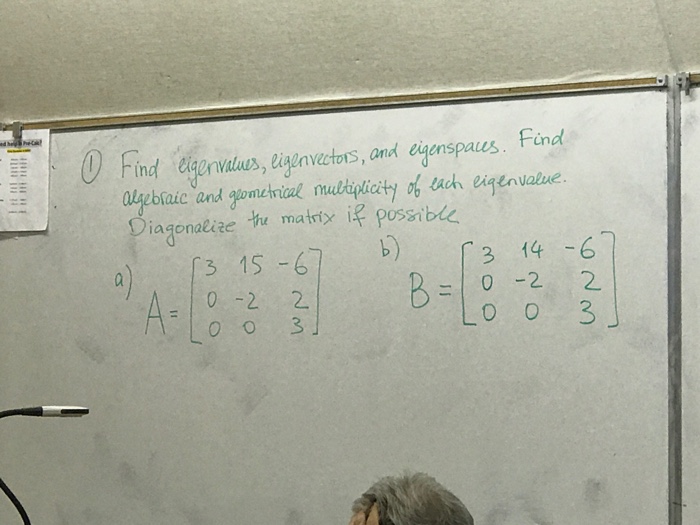 ① Find eigenvalues, eigenvectors, and eigenspaces. Find
algebraic and geometrical multiplicity of each eigenvalue.
Diagonalize the matrix if possible
a) A = [3 15 -6
0 -2 2
0 0 3]
b) B = [3 14 -6
0 -2 2
0 0 3]